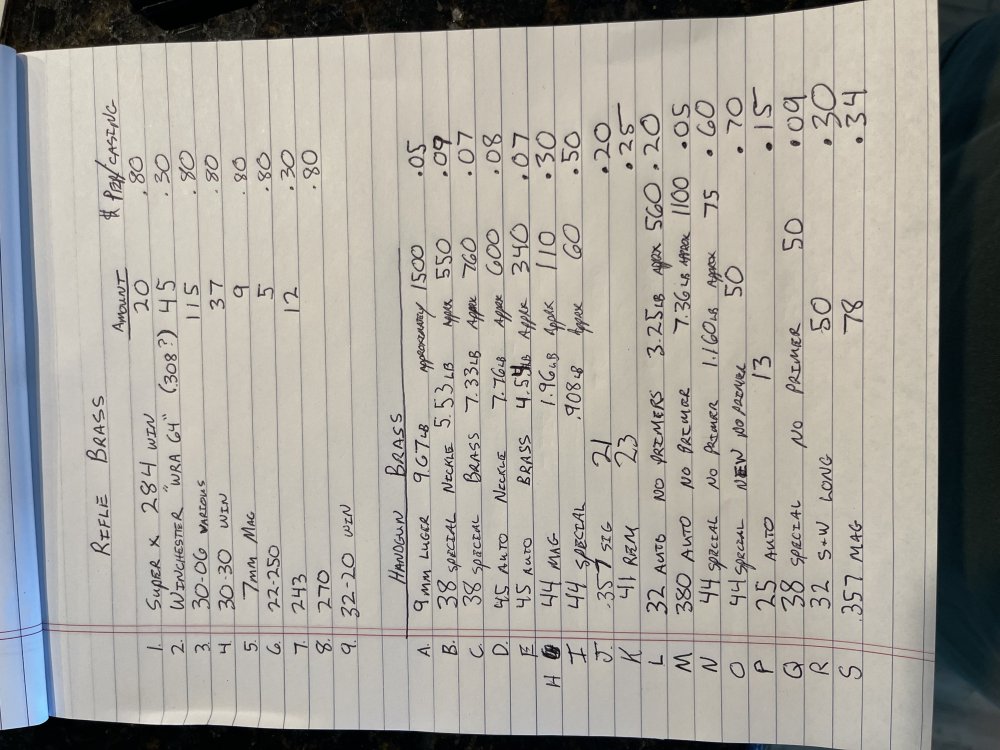 RIFLE BRASS
AMOUNT $ PER/CASING
1. SUPER X 284 WIN 20 .80
2. WINCHESTER "WRA 64" (308?) 45 .30
3. 30-06 VARIOUS 115 .80
4. 30-30 WIN 37 .80
5. 7MM MAG 9 .80
6. 22-250 5 .80
7. 243 12 .30
8. 270 .80
9. 32-20 WIN
HANDGUN BRASS
A. 9MM LUGER 9.67 LB APPROXIMATELY 1500 .05
B. 38 SPECIAL NICKLE 5.53 LB APPRX 550 .09
C. 38 SPECIAL BRASS 7.33 LB APPRX 760 .07
D. 45 AUTO NICKLE 7.76 LB APPRX 600 .08
E. 45 AUTO BRASS 4.54 LB APPRX 340 .07
H 44 MAG 1.96 LB APPRX 110 .30
I 44 SPECIAL .908 LB APPRX 60 .50
J. .357 SIG 21 .20
K 41 REM 23 .25
L 32 AUTO NO PRIMERS 3.25 LB APPRX 560 .20
M 380 AUTO NO PRIMER 7.36 LB APPRX 1100 .05
N 44 SPECIAL NO PRIMER 1.160 LB APPRX 75 .60
O 44 SPECIAL NEW NO PRIMER 50 .70
P 25 AUTO 13 .15
Q 38 SPECIAL NO PRIMER 50 .09
R 32 S+W LONG 50 .30
S .357 MAG 78 .34